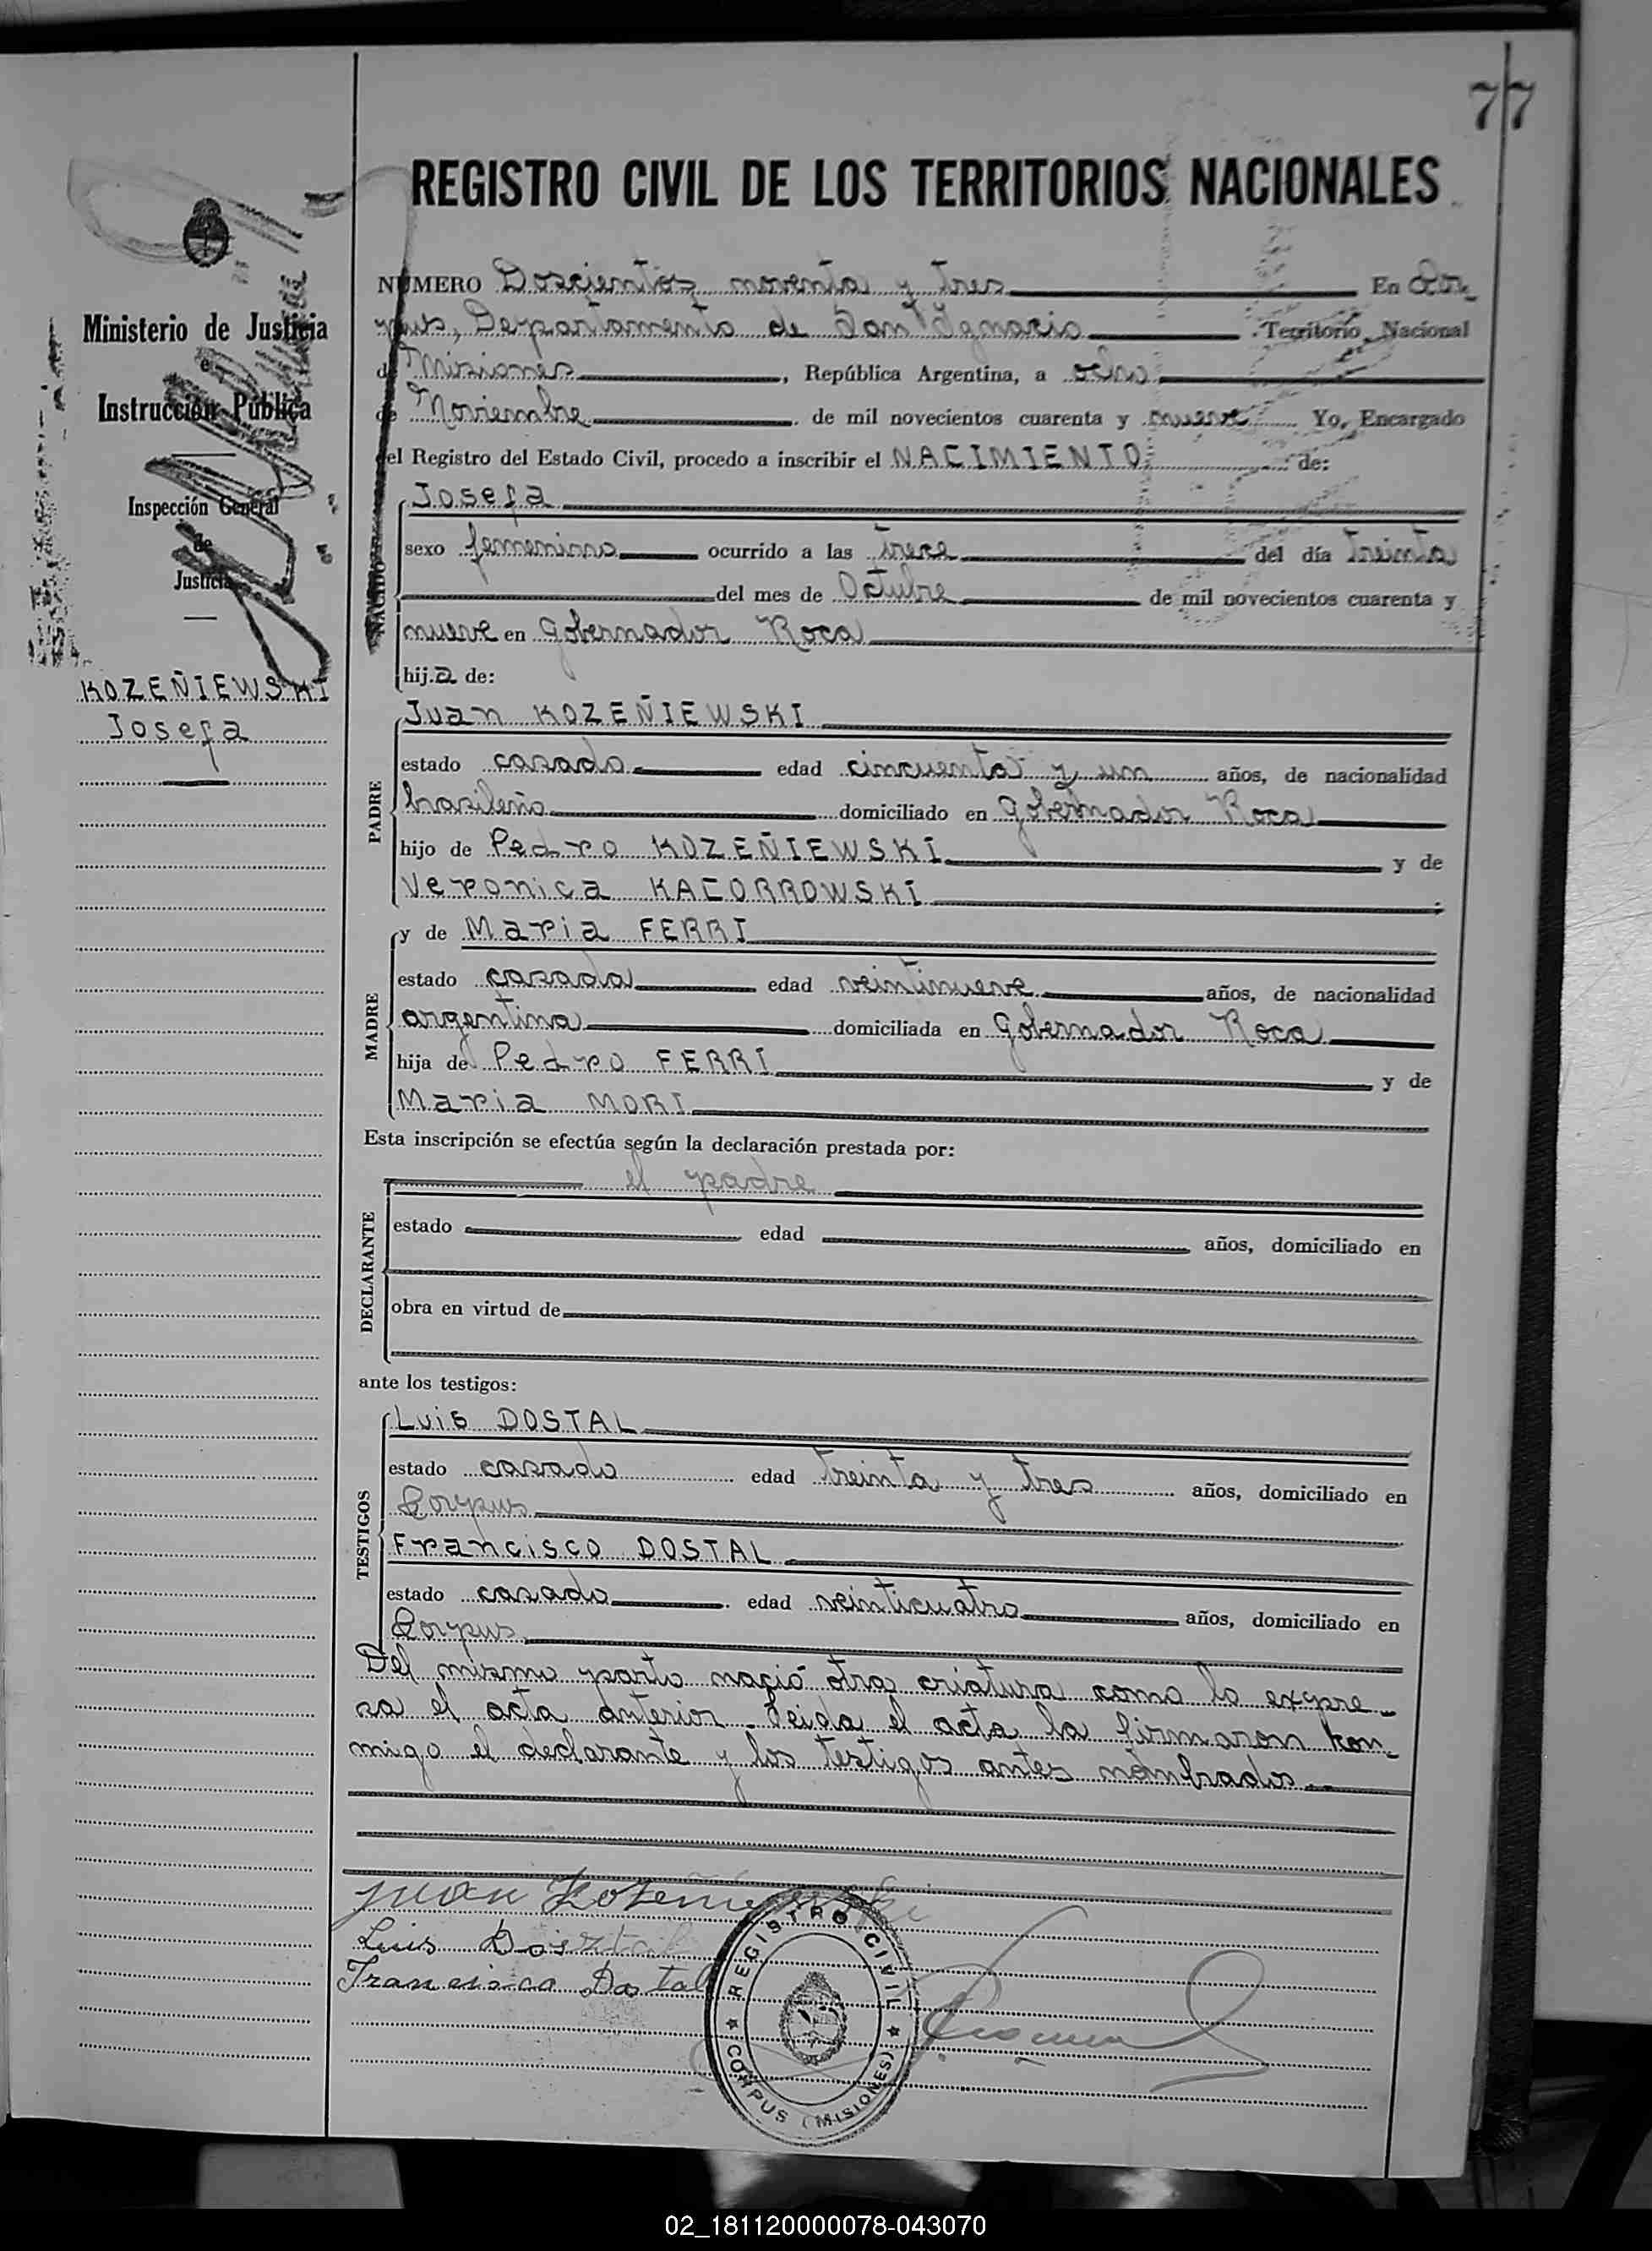 77
REGISTRO CIVIL DE LOS TERRITORIOS NACIONALES
NÚMERO Doscientos noventa y tres En Cor-
pus, Departamento de San Ignacio Territorio Nacional
de Misiones, República Argentina, a ocho
de Noviembre de mil novecientos cuarenta y nueve Yo, Encargado
del Registro del Estado Civil, procedo a inscribir el NACIMIENTO de:
NACIDO
Josefa
sexo femenino ocurrido a las trece del día treinta
del mes de Octubre de mil novecientos cuarenta y
nueve en Gobernador Roca
hija de:
PADRE
Juan KOZEÑIEWSKI
estado casado edad cincuenta y un años, de nacionalidad
brasileño domiciliado en Gobernador Roca
hijo de Pedro KOZEÑIEWSKI y de
Veronica KACORROWSKI
MADRE
y de Maria FERRI
estado casada edad veintinueve años, de nacionalidad
argentina domiciliada en Gobernador Roca
hija de Pedro FERRI y de
Maria MORI
Esta inscripción se efectúa según la declaración prestada por:
DECLARANTE
el padre
estado edad años, domiciliado en
obra en virtud de
ante los testigos:
TESTIGOS
Luis DOSTAL
estado casado edad treinta y tres años, domiciliado en
Corpus
Francisco DOSTAL
estado casado edad veinticuatro años, domiciliado en
Corpus
Del mismo parto nació otra criatura como lo expre-
sa el acta anterior. Leida el acta la firmaron kon-
migo el declarante y los testigos antes nombrados.
Juan Kozeñiewski
Luis Dostal
Francisco Dostal
REGISTRO CIVIL
CORPUS (MISIONES)
Ministerio de Justicia
e
Instrucción Pública
Inspección General
de
Justicia
KOZEÑIEWSKI
Josefa
02_181120000078-043070